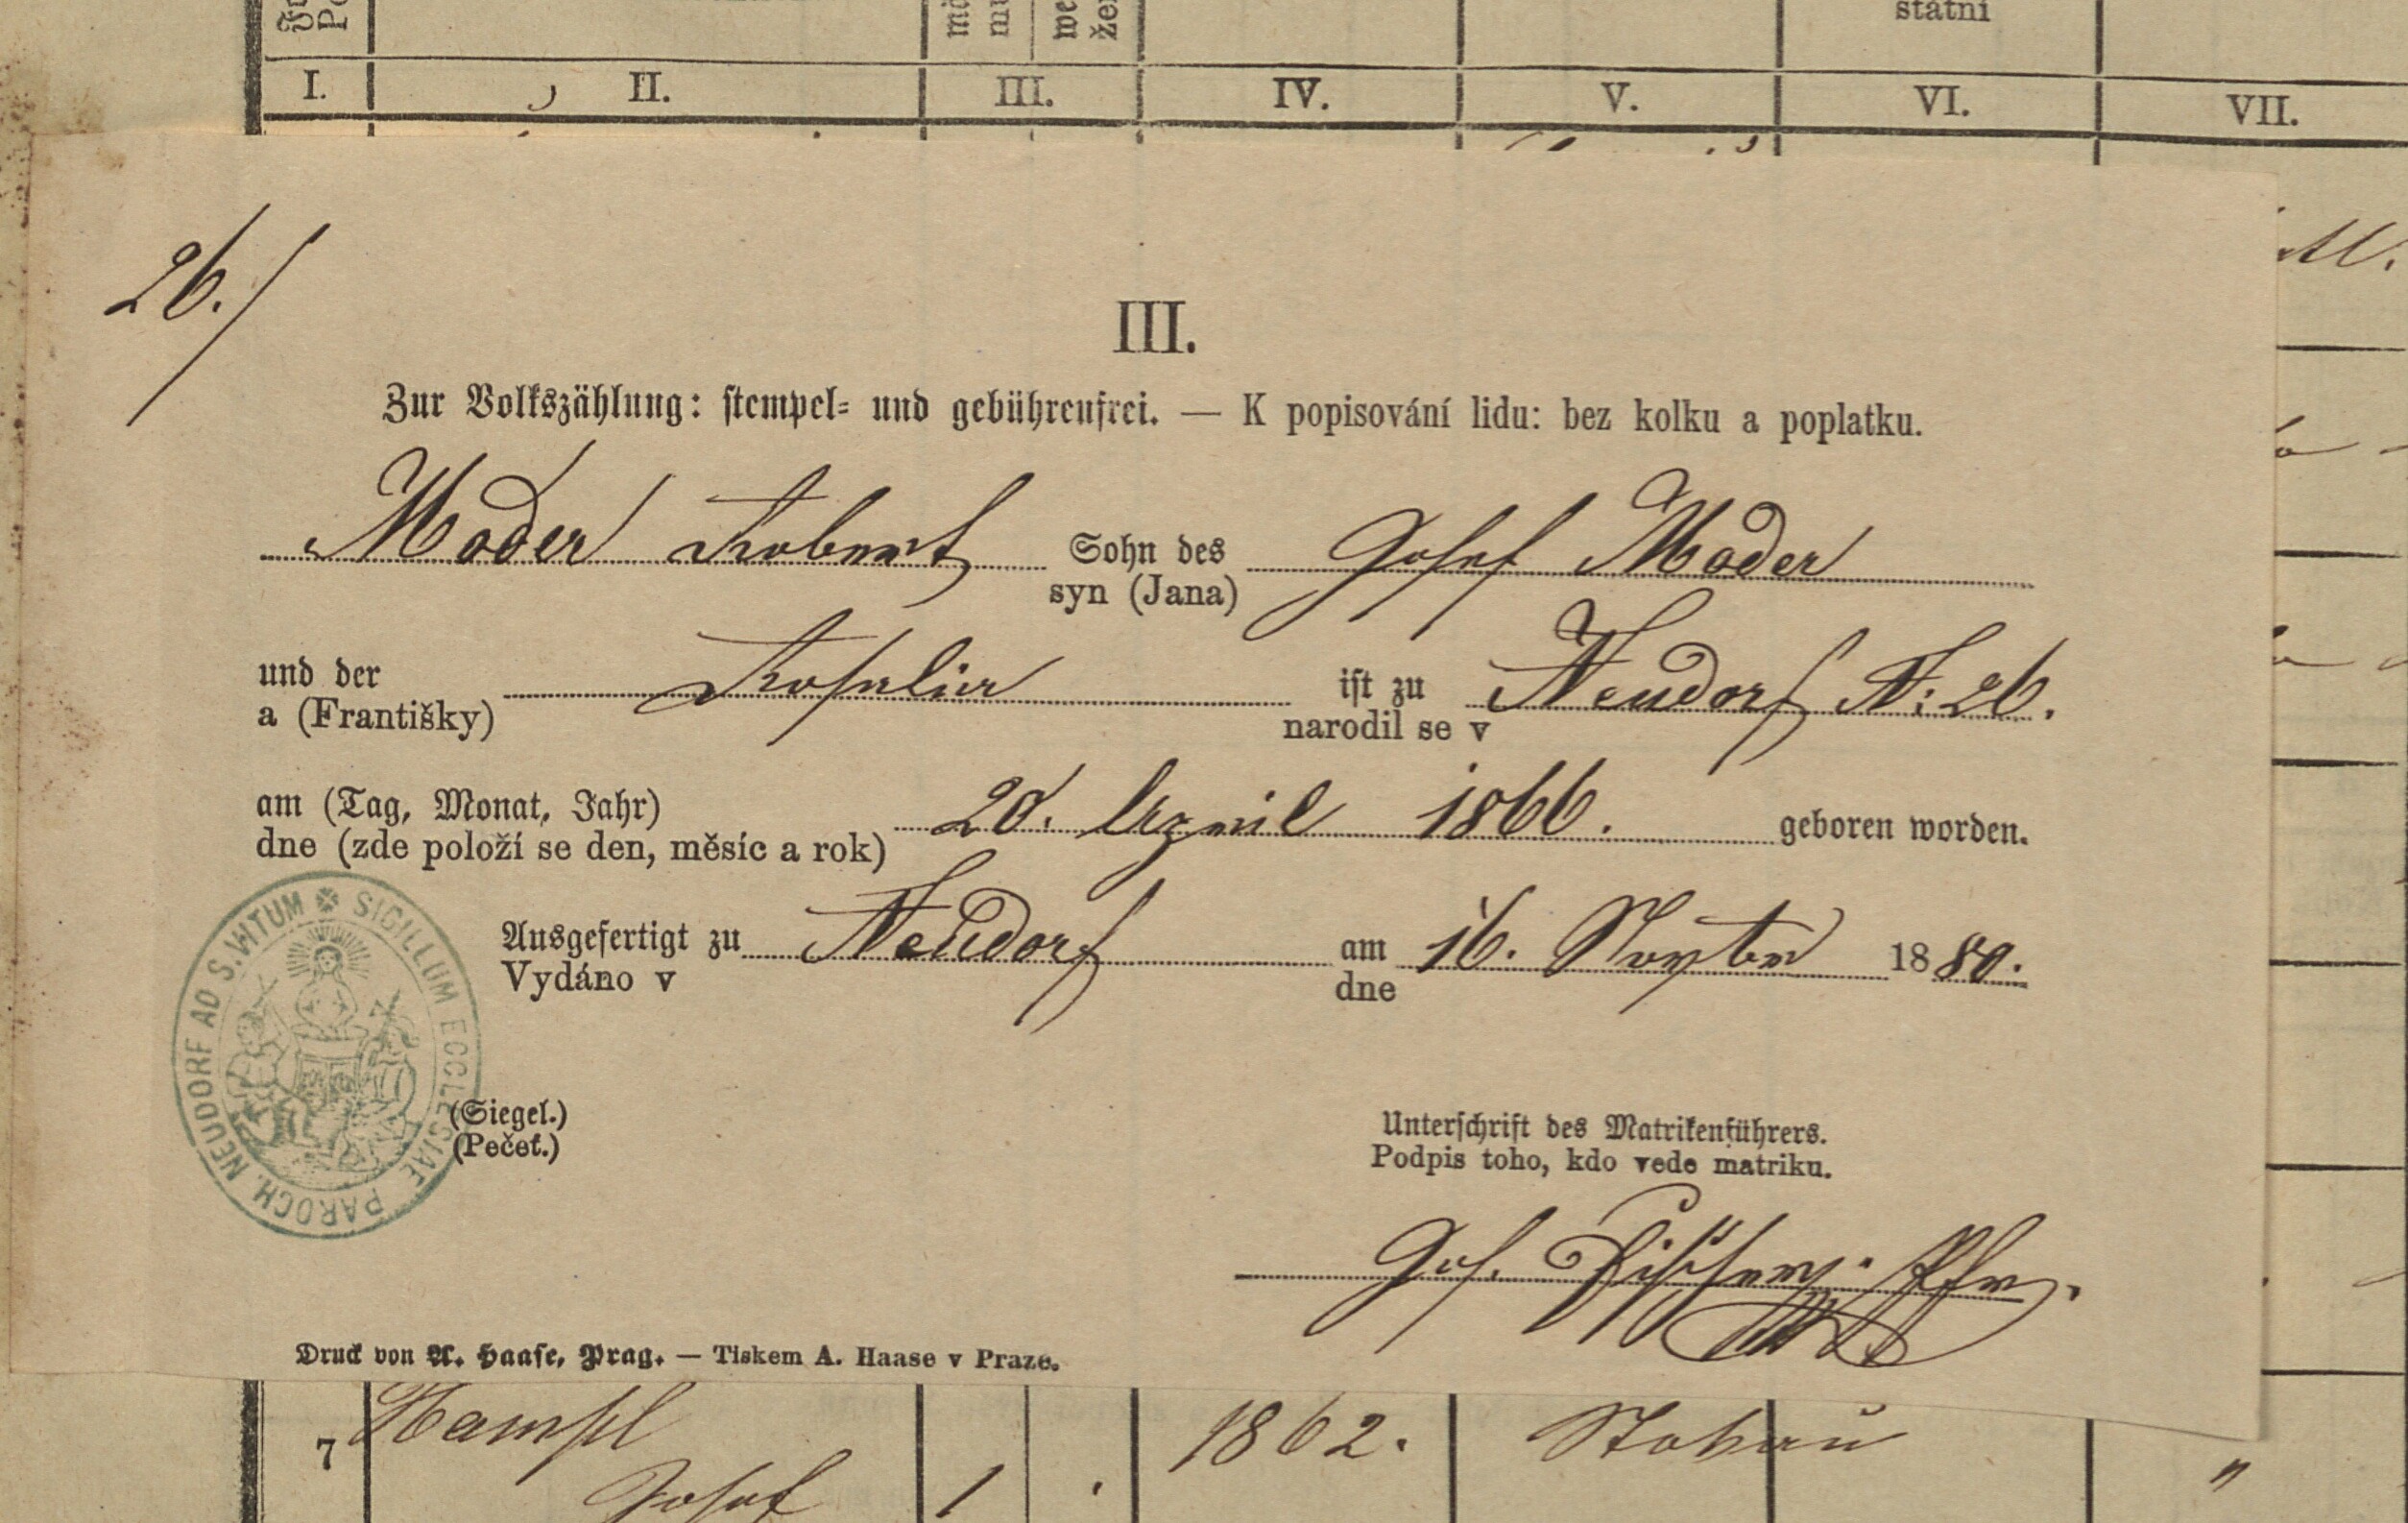 státní
I. II. III. IV. V. VI. VII.
26./
III.
Zur Volkszählung: stempel- und gebührenfrei. — K popisování lidu: bez kolku a poplatku.
Moder Robert Sohn des Josef Moder
syn (Jana)
und der Rosalia ist zu Neudorf N: 26.
a (Františky) narodil se v
am (Tag, Monat, Jahr) 28. April 1866. geboren worden.
dne (zde položí se den, měsíc a rok)
Ausgefertigt zu Neudorf am 16. Novbr 1880.
Vydáno v dne
SIGILLUM ECCLESIAE PAROCH. NEUDORF AD S. VITUM
(Siegel.)
(Pečeť.)
Unterschrift des Matrikenführers.
Podpis toho, kdo vede matriku.
Jos. Pfr.
Druck von A. Haase, Prag. — Tiskem A. Haase v Praze.
7 Hampl 1862. "
Josef 1